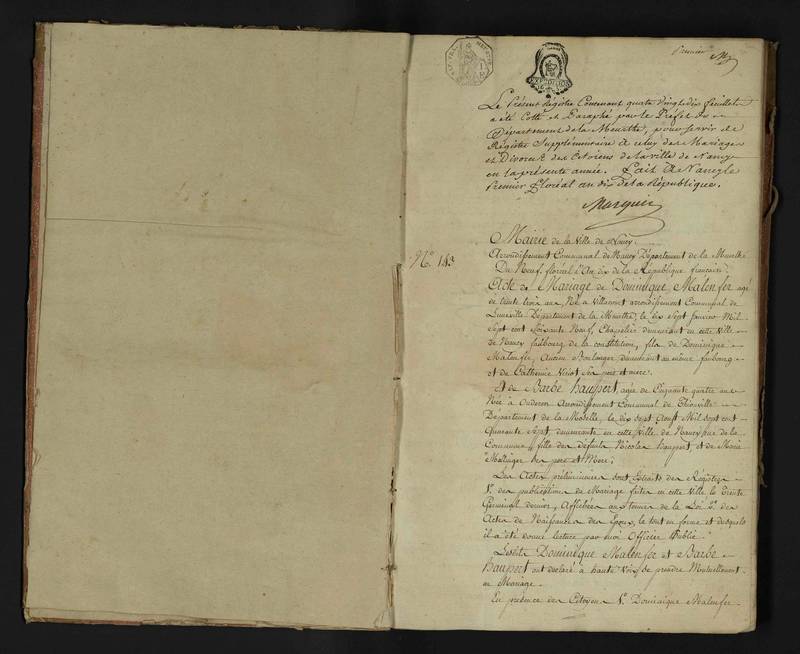 Premier
EXPEDITION
Le Présent Régistre Contenant quatre vingt dix feuillets
a été Cotté et Paraphé par le Préfet du
Département de la Meurthe, pour servir de
Régistre Supplémentaire à celuy des Mariages
et Divorces des Citoiens de la ville de Nancy
en la présente année. Fait à Nancy le
Premier Floréal an dix de la République.
Marquis
Mairie de la Ville de Nancy.
Arrondissement Communal de Nancy Département de la Meurthe
Du Neuf floréal l'An dix de la République française;
Nº. 143
Acte de Mariage de Dominique Malenfer agé
de trente trois ans, Né à arrondissement Communal de
Luneville Département de la Meurthe, le dix Sept Janvier Mil
Sept cent Soixante Neuf, Chapelier demeurant en cette Ville
de Nancy faubourg de la constitution, fils de Dominique
Malenfer, Ancien Boulanger demeurant au même faubourg
et de Catherine Viriot Ses pere et mere.
Et de Barbe haupert, agée de Cinquante quatre ans
Née à Arrondissement Communal de Thionville
Département de la Moselle, le dix sept Aoust Mil Sept cent
Quarante Sept, demeurante en cette Ville de Nancy rue de la
Commune, fille des défunts Nicolas haupert, et de Marie
Mellinger Ses pere et Mere;
Les Actes préliminaires sont Extraits des Régistres
1º. des publications de Mariage faites en cette Ville le Trente
Germinal dernier, Affichées aux termes de la Loi 2º. des
Actes de Naissances des Epoux, le tout en forme et desquels
il a été donné lecture par moi Officier Public.
Lesdits Dominique Malenfer et Barbe
haupert ont déclaré à haute Voix se prendre Mutuellement
en Mariage.
En présence des Citoyens 1º. Dominique Malenfer